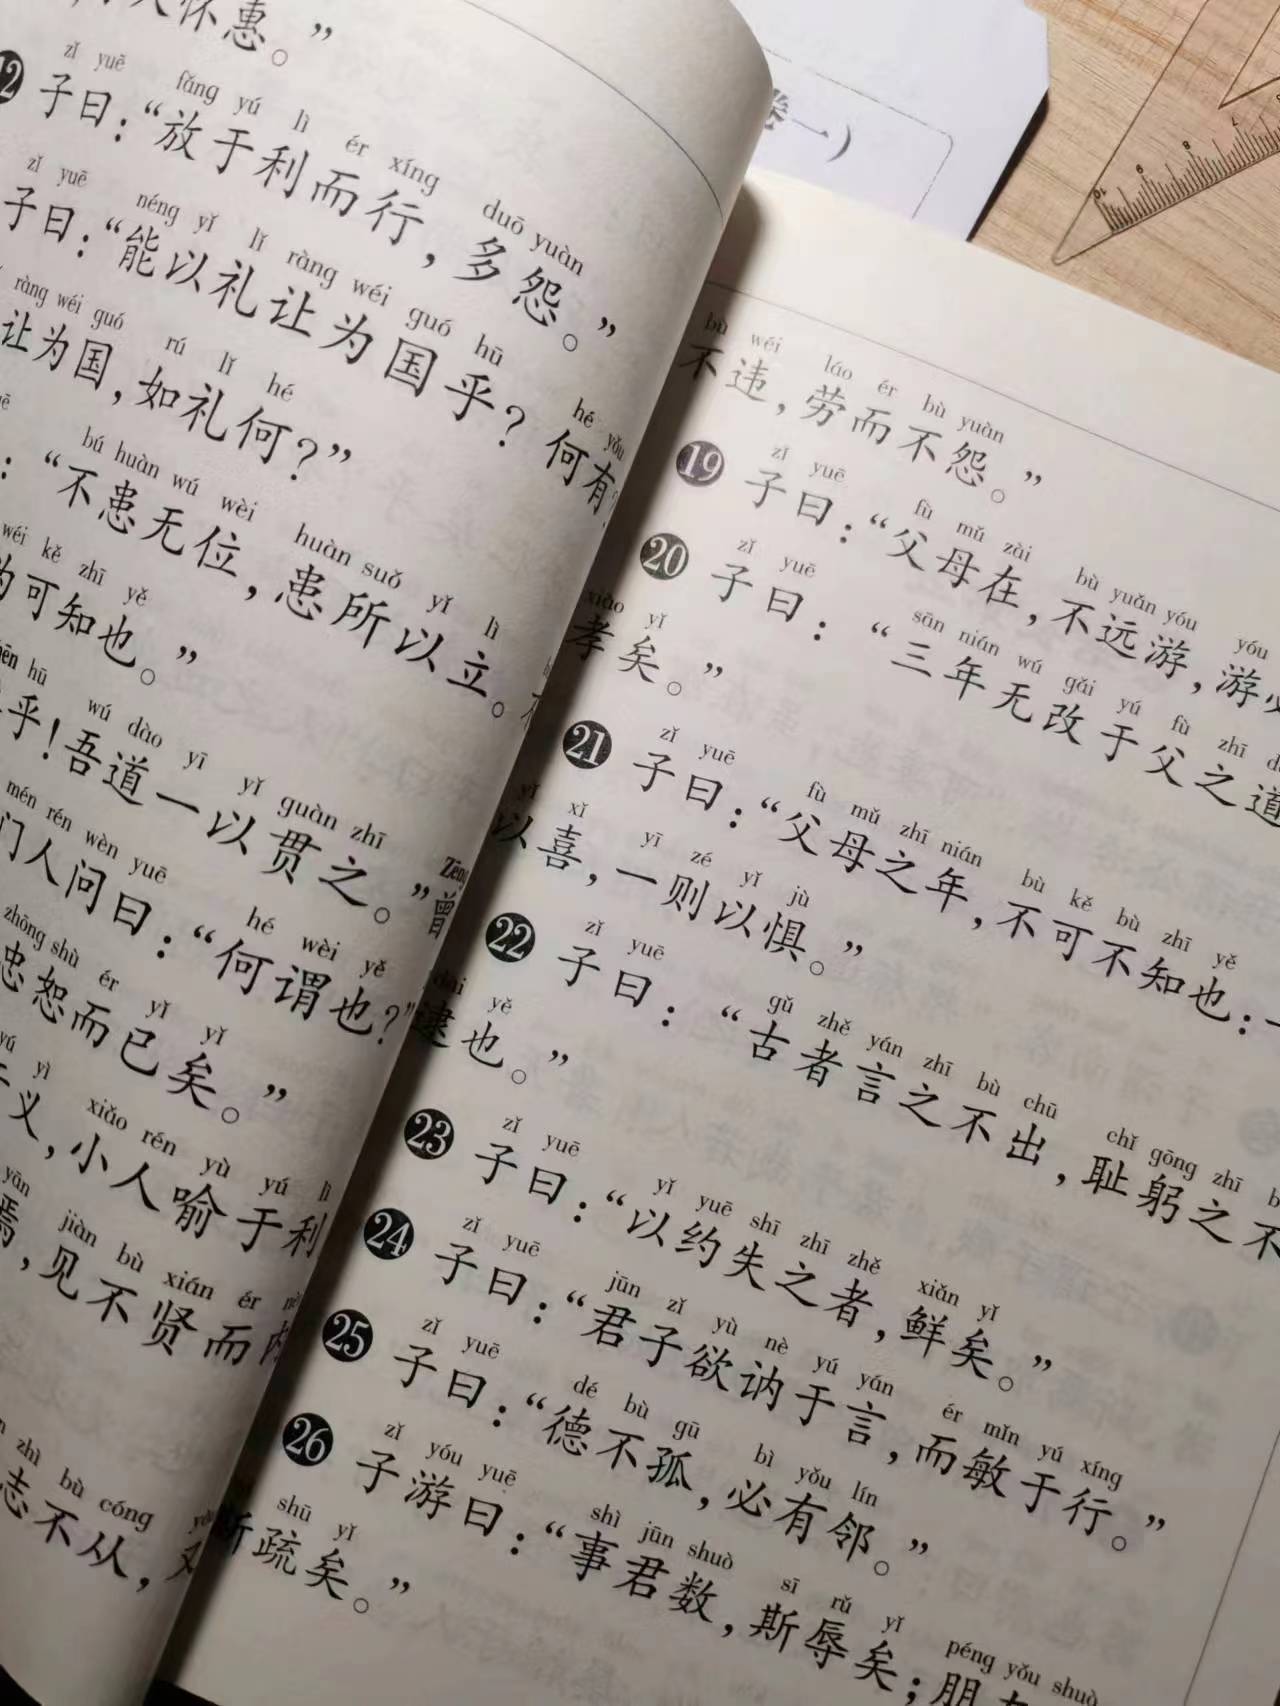 人怀惠。”
zǐ yuē fǎng yú lì ér xíng duō yuàn
12 子曰：“放于利而行，多怨。”
zǐ yuē néng yǐ lǐ ràng wéi guó hū hé yǒu
子曰：“能以礼让为国乎？何有
ràng wéi guó rú lǐ hé
让为国，如礼何？”
bú huàn wú wèi huàn suǒ yǐ lì
：“不患无位，患所以立。不
wéi kě zhī yě
为可知也。”
hū wú dào yī yǐ guàn zhī Zēng
乎！吾道一以贯之。”曾
mén rén wèn yuē hé wèi yě
门人问曰：“何谓也？”
zhōng shù ér yǐ yǐ
忠恕而已矣。”
yú yì xiǎo rén yù yú lì
于义，小人喻于利
yān jiàn bù xián ér nèi
焉，见不贤而内
zhì bù cóng
志不从，又
bù wéi láo ér bù yuàn
不违，劳而不怨。”
zǐ yuē fù mǔ zài bù yuǎn yóu yóu
19 子曰：“父母在，不远游，游必
zǐ yuē sān nián wú gǎi yú fù zhī
20 子曰：“三年无改于父之道
xiào yǐ
孝矣。”
zǐ yuē fù mǔ zhī nián bù kě bù zhī yě
21 子曰：“父母之年，不可不知也：一
yǐ xǐ yī zé yǐ jù
以喜，一则以惧。”
zǐ yuē gǔ zhě yán zhī bù chū chǐ gōng zhī
22 子曰：“古者言之不出，耻躬之不
dài yě
逮也。”
zǐ yuē yǐ yuē shī zhī zhě xiǎn yǐ
23 子曰：“以约失之者，鲜矣。”
zǐ yuē jūn zǐ yù nè yú yán ér mǐn yú xíng
24 子曰：“君子欲讷于言，而敏于行。”
zǐ yuē dé bù gū bì yǒu lín
25 子曰：“德不孤，必有邻。”
zǐ yóu yuē shì jūn shuò sī rǔ yǐ péng yǒu shuò
26 子游曰：“事君数，斯辱矣；朋友
shū yǐ
斯疏矣。”
卷一）
7 8 9 10